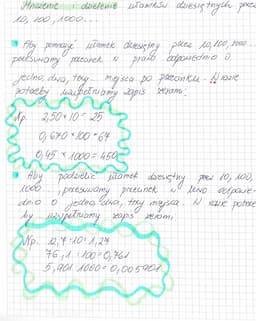 Mnożenie i dzielenie ułamków dziesiętnych przez
10, 100, 1000...
Aby pomnożyć ułamek dziesiętny przez 10, 100, 1000...
przesuwamy przecinek w prawo odpowiednio o
jedno, dwa, trzy... miejsca po przecinku. W razie
potrzeby uzupełniamy zapis zerami.
Np. 2,50 × 10 = 25
0,670 × 100 = 67
0,45 × 1000 = 450
Aby podzielić ułamek dziesiętny przez 10, 100,
1000..., przesuwamy przecinek w lewo odpowie-
dnio o jedno, dwa, trzy miejsca. W razie potrze-
by uzupełniamy zapis zerami.
Np. 12,7 : 10 = 1,27
76,1 : 100 = 0,761
5,901 : 1000 = 0,005901